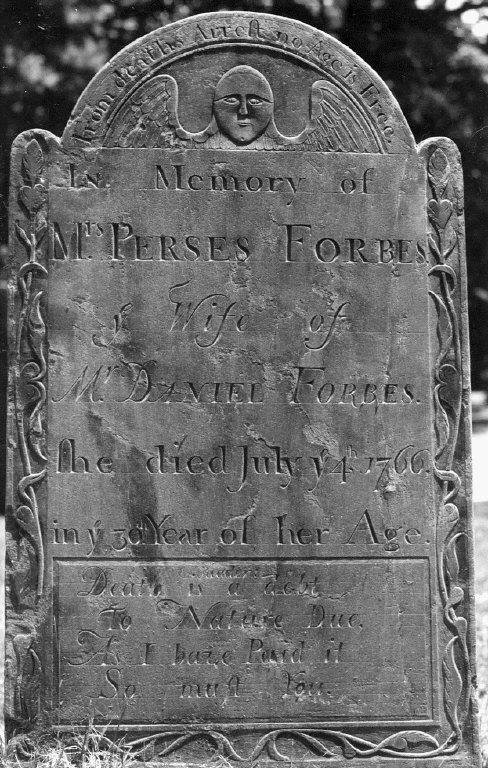 from death's Arrest no Age is Free.
In Memory of
Mrs. PERSES FORBES
ye Wife of
Mr. DANIEL FORBES.
she died July ye 4th. 1766.
in ye 3d Year of her Age.
Death is a debt
To Nature Due,
As I have Paid it
So must You.